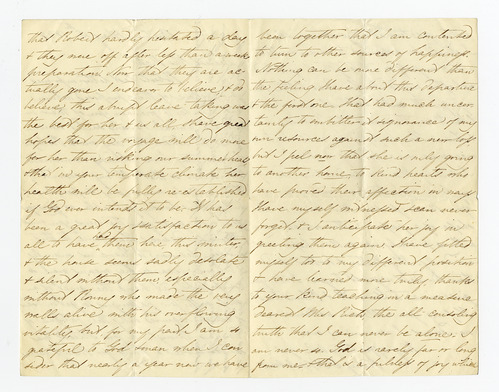 that Robert hardly hesitated a day
& they were off after less than a week
preparation. Now that they are ac-
tually gone I endeavor to believe & do
believe, this abrupt leave taking was
the best for her & us all. I have great
hopes that the voyage will do more
for her than risking our summer heats
& that in your temperate climate her
health will be fully re-established
if God ever intends it to be. It has
been a great joy & satisfaction to us
all to have had them here this winter,
& the house seems sadly desolate
& silent without them especially
without Ronny who made the very
walls alive with his overflowing
vitality, but for my part I am so
grateful to God & man when I con-
sider that nearly a year now we have
been together that I am contented
to turn to other sources of happiness.
Nothing can be more different than
the feeling I have about this departure
& the fond one that had much uncer-
tainty to embitter it, ignorance of my
own resources against such a new loss
but I feel now that she is only going
to another home, to kind hearts who
have proved their affection in ways
I have myself witnessed & can never
forget, & I anticipate her joy in
greeting them again. I have fitted
myself too to my different position
& have learned more truly thanks
to your kind teaching in a measure
Dearest Miss the all consoling
truth that I can never be alone. I
am never so. God is rarely far or long
from me & that is a fullness of joy which